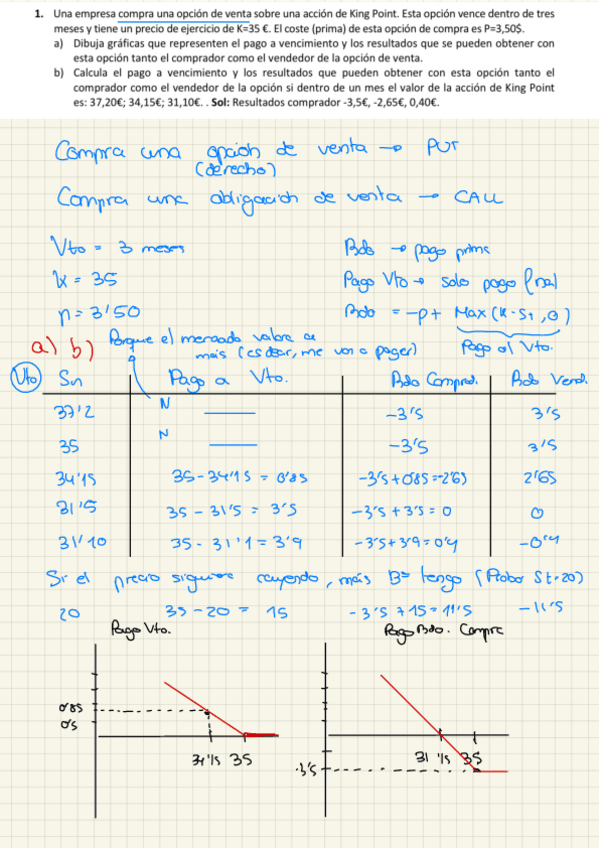 1. Una empresa compra una opción de venta sobre una acción de King Point. Esta opción vence dentro de tres
meses y tiene un precio de ejercicio de K=35 €. El coste (prima) de esta opción de compra es P=3,50$.
a) Dibuja gráficas que representen el pago a vencimiento y los resultados que se pueden obtener con
esta opción tanto el comprador como el vendedor de la opción de venta.
b) Calcula el pago a vencimiento y los resultados que pueden obtener con esta opción tanto el
comprador como el vendedor de la opción si dentro de un mes el valor de la acción de King Point
es: 37,20€; 34,15€; 31,10€. . Sol: Resultados comprador -3,5€, -2,65€, 0,40€.
Compra una opción de venta → PUT
(derecho)
Compra una obligación de venta → CALL
Vto = 3 meses
Bdo → pago prima
K = 35
Pago Vto → solo pago final
p = 3'50
Bdo = -p + Max (K - St, 0)
Pago al Vto.
a) b) Porque el mercado valora a
más (es decir, me van a pagar)
Vto Sn Pago a Vto. Bdo Comprad. Bdo Vend.
37'2 N -3'5 3'5
35 N -3'5 3'5
34'15 35-34'15 = 0'85 -3'5+0'85=-2'65 2'65
31'5 35 - 31'5 = 3'5 -3'5 + 3'5 = 0 0
31'10 35 - 31'1 = 3'9 -3'5+3'9=0'4 -0'4
Si el precio siguiera cayendo, más Bº tengo (Probar St=20)
20 35-20 = 15 -3'5 +15=11'5 -11'5
Pago Vto. Pago Bdo. Compra
0'85
0's
34'15 35
31'5 35
-3'5